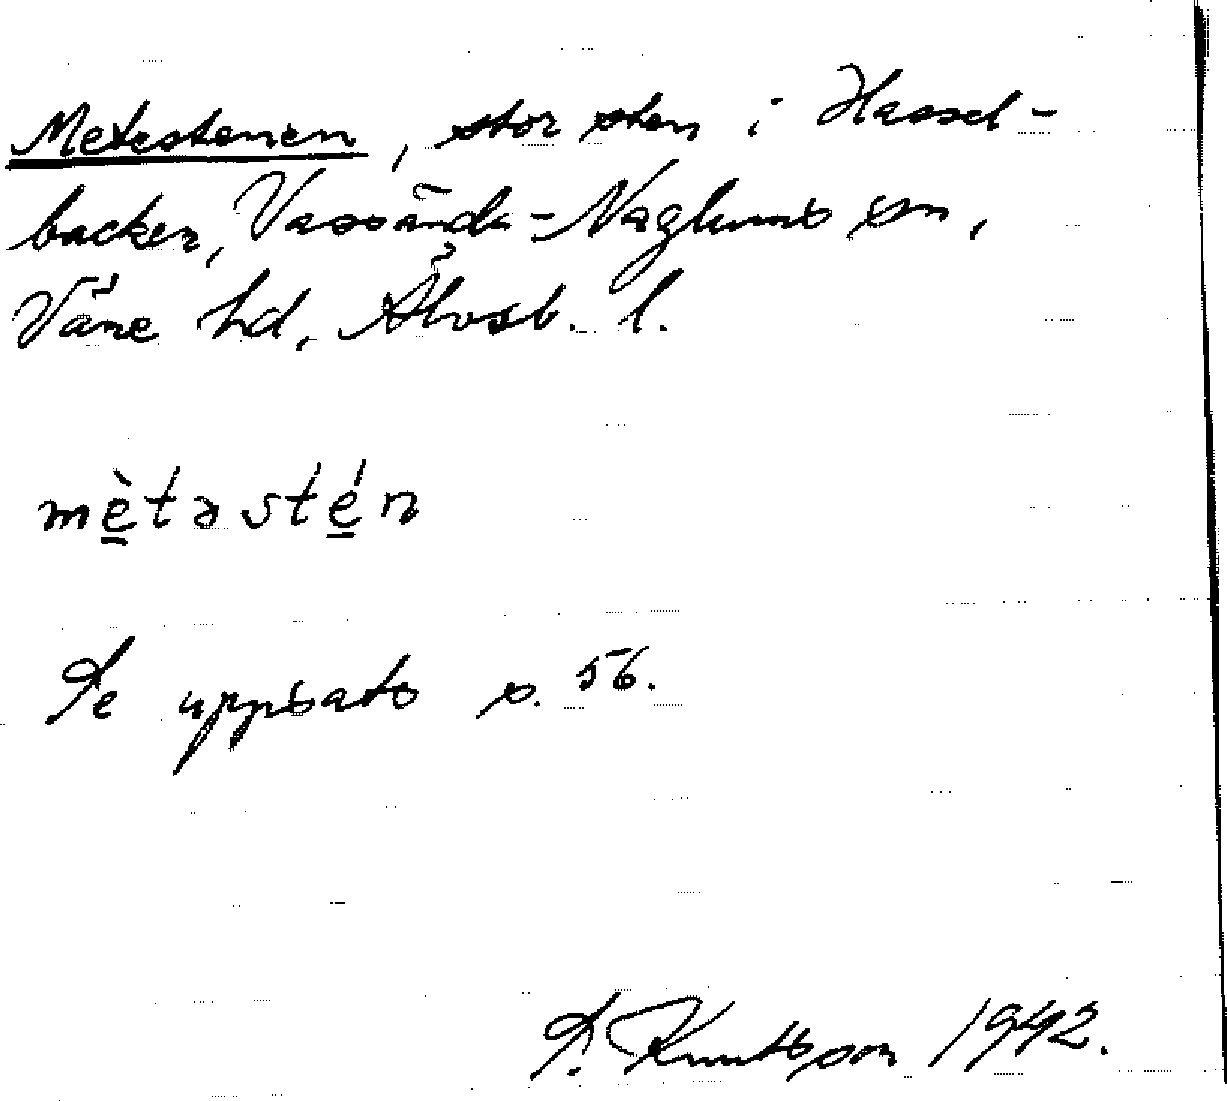 Metestenen, stor sten i Hassel-
backen, Vassända-Naglums sn,
Väne hd, Älvsb. l.
mètəstén
Se uppsats s. 56.
S. Knutsson 1942.